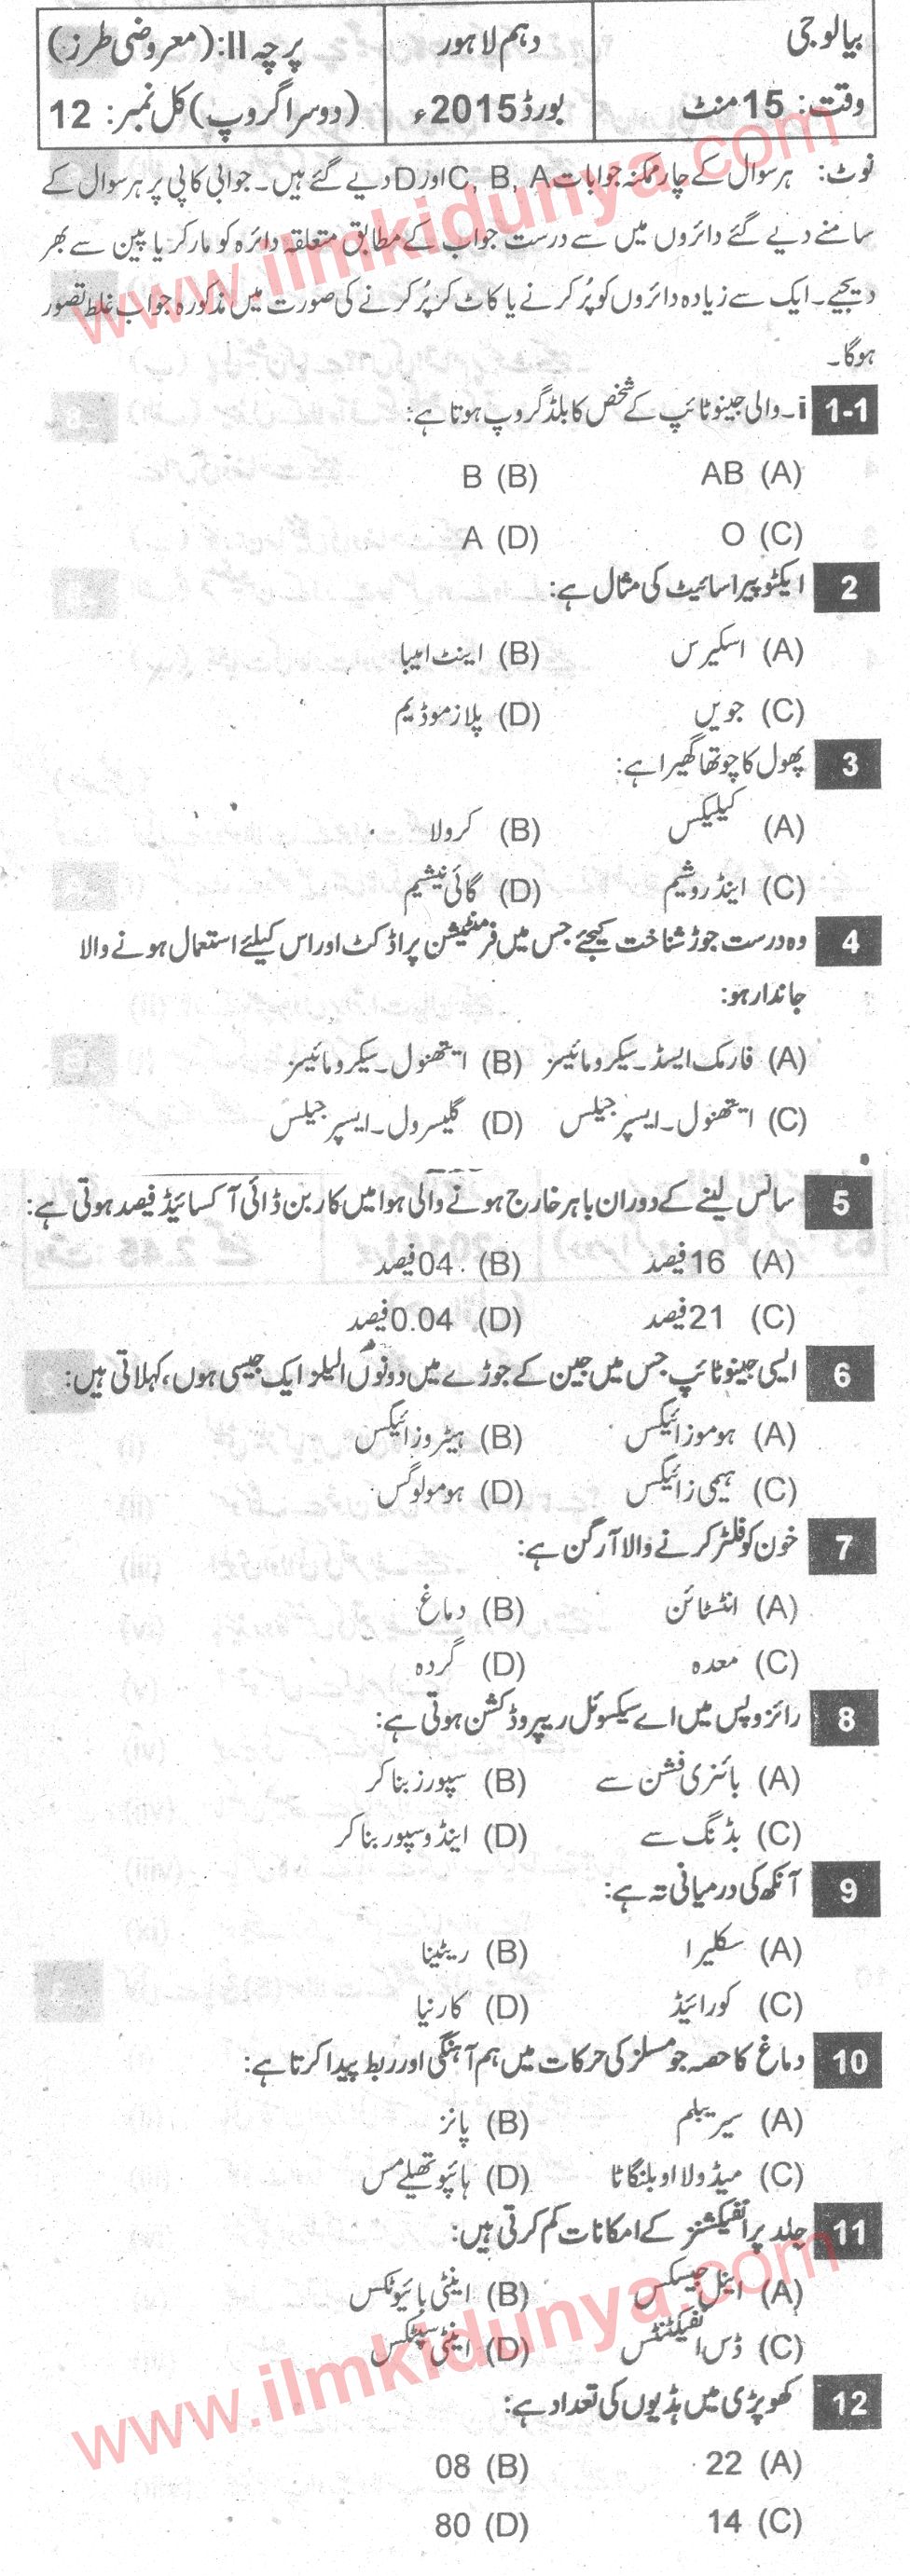 بیالوجی
دہم لاہور
پرچہ II: (معروضی طرز)
وقت: 15 منٹ
بورڈ 2015ء
(دوسرا گروپ) کل نمبر: 12
نوٹ: ہر سوال کے چار ممکنہ جوابات C, B, A اور D دیے گئے ہیں۔ جوابی کاپی پر ہر سوال کے
سامنے دیے گئے دائروں میں سے درست جواب کے مطابق متعلقہ دائرہ کو مارکر یا پین سے بھر
دیجیے۔ ایک سے زیادہ دائروں کو پُر کرنے یا کاٹ کر پُر کرنے کی صورت میں مذکورہ جواب غلط تصور
ہوگا۔
www.ilmkidunya.com
1-1 i۔ والی جینوٹائپ کے شخص کا بلڈ گروپ ہوتا ہے:
(A) AB (B) B
(C) O (D) A
2 ایکٹوپیراسائیٹ کی مثال ہے:
(A) اسکیرس (B) اینٹ امیبا
(C) جویں (D) پلازموڈیم
3 پھول کا چوتھا گھیرا ہے:
(A) کیلیکس (B) کرولا
(C) اینڈروشیم (D) گائی نیشیم
4 وہ درست جوڑ شناخت کیجئے جس میں فرمنٹیشن پراڈکٹ اور اس کیلئے استعمال ہونے والا
جاندار ہو:
(A) فارمک ایسڈ۔ سیکرومائیسز (B) ایتھنول۔ سیکرومائیسز
(C) ایتھنول۔ ایسپرجیلس (D) گلیسرول۔ ایسپرجیلس
5 سانس لینے کے دوران باہر خارج ہونے والی ہوا میں کاربن ڈائی آکسائیڈ فیصد ہوتی ہے:
(A) 16 فیصد (B) 04 فیصد
(C) 21 فیصد (D) 0.04 فیصد
6 ایسی جینوٹائپ جس میں جین کے جوڑے میں دونوں الیلز ایک جیسی ہوں، کہلاتی ہیں:
(A) ہوموزائیگس (B) ہیٹروزائیگس
(C) ہیمی زائیگس (D) ہومولوگس
7 خون کو فلٹر کرنے والا آرگن ہے:
(A) انٹسٹائن (B) دماغ
(C) معدہ (D) گردہ
8 رائزوپس میں اے سیکسوئل ریپروڈکشن ہوتی ہے:
(A) بائنری فشن سے (B) سپورز بنا کر
(C) بڈنگ سے (D) اینڈوسپور بنا کر
9 آنکھ کی درمیانی تہ ہے:
(A) سکلیرا (B) ریٹینا
(C) کورائیڈ (D) کارنیا
10 دماغ کا حصہ جو مسلز کی حرکات میں ہم آہنگی اور ربط پیدا کرتا ہے:
(A) سیریبلم (B) پانز
(C) میڈولا اوبلنگاٹا (D) ہائپوتھیلے مس
11 جلد پر انفیکشنز کے امکانات کم کرتی ہیں:
(A) اینل جیسکس (B) اینٹی بائیوٹکس
(C) ڈس انفیکٹنٹس (D) اینٹی سپٹکس
12 کھوپڑی میں ہڈیوں کی تعداد ہے:
www.ilmkidunya.com
(A) 22 (B) 08
(C) 14 (D) 80